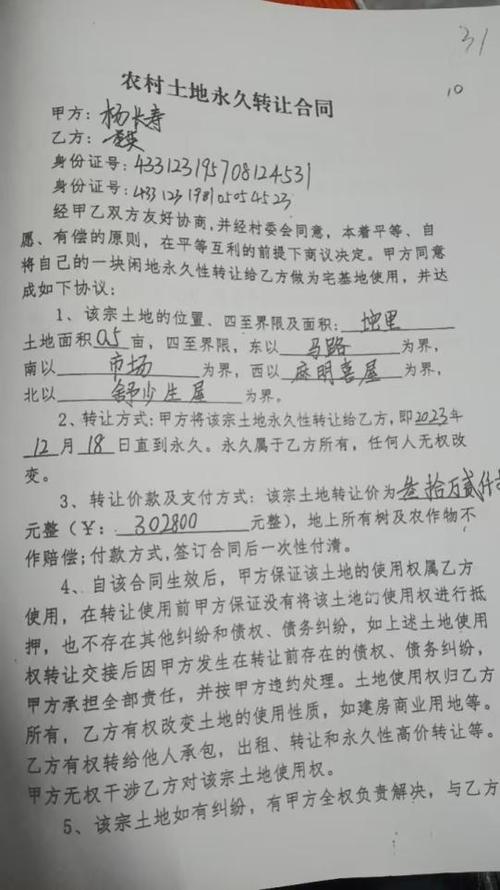 31
10
农村土地永久转让合同
甲方：杨长寿
乙方：
身份证号：433123195708124531
身份证号：433123198105054523
经甲乙双方友好协商，并经村委会同意，本着平等、自
愿、有偿的原则，在平等互利的前提下商议决定。甲方同意
将自己的一块闲地永久性转让给乙方做为宅基地使用，并达
成如下协议：
1、该宗土地的位置、四至界限及面积：地里
土地面积0.5亩，四至界限，东以马路为界，
南以市场为界，西以麻明喜屋为界，
北以舒少生屋为界。
2、转让方式：甲方将该宗土地永久性转让给乙方，即2023年
12月18日直到永久。永久属于乙方所有，任何人无权改
变。
3、转让价款及支付方式：该宗土地转让价为叁拾万贰仟
元整（¥：302800元整），地上所有树及农作物不
作赔偿；付款方式，签订合同后一次性付清。
4、自该合同生效后，甲方保证该土地的使用权属乙方
使用，在转让使用前甲方保证没有将该土地的使用权进行抵
押，也不存在其他纠纷和债权、债务纠纷，如上述土地使用
权转让交接后因甲方发生在转让前存在的债权、债务纠纷，
甲方承担全部责任，并按甲方违约处理。土地使用权归乙方
所有，乙方有权改变土地的使用性质，如建房商业用地等。
乙方有权转给他人承包，出租、转让和永久性高价转让等。
甲方无权干涉乙方对该宗土地使用权。
5、该宗土地如有纠纷，有甲方全权负责解决，与乙方